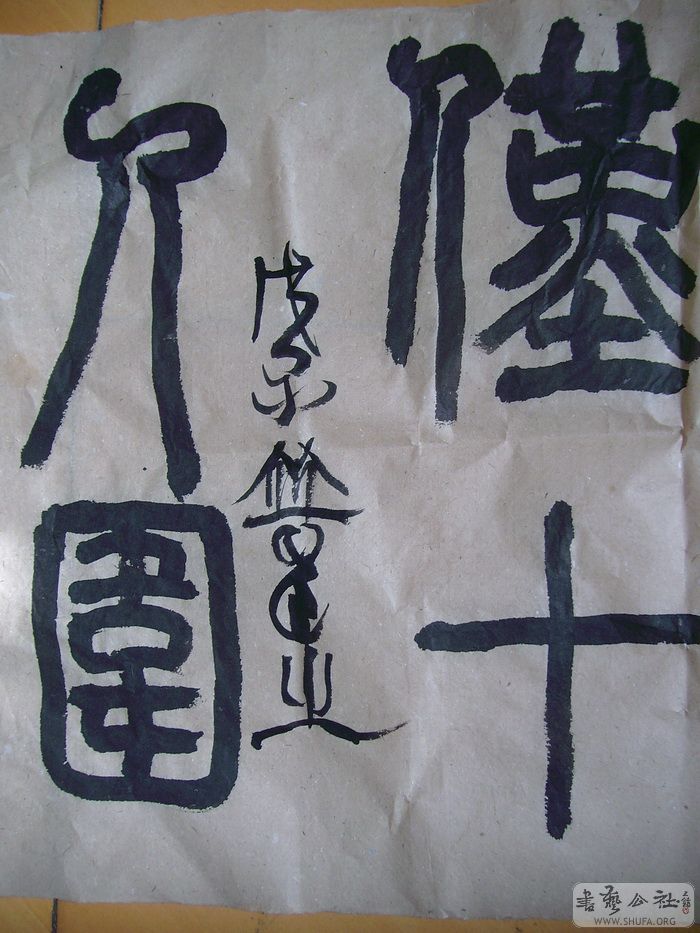 僅十
人圍
戊子
之
書藝公社
WWW.SHUFA.ORG